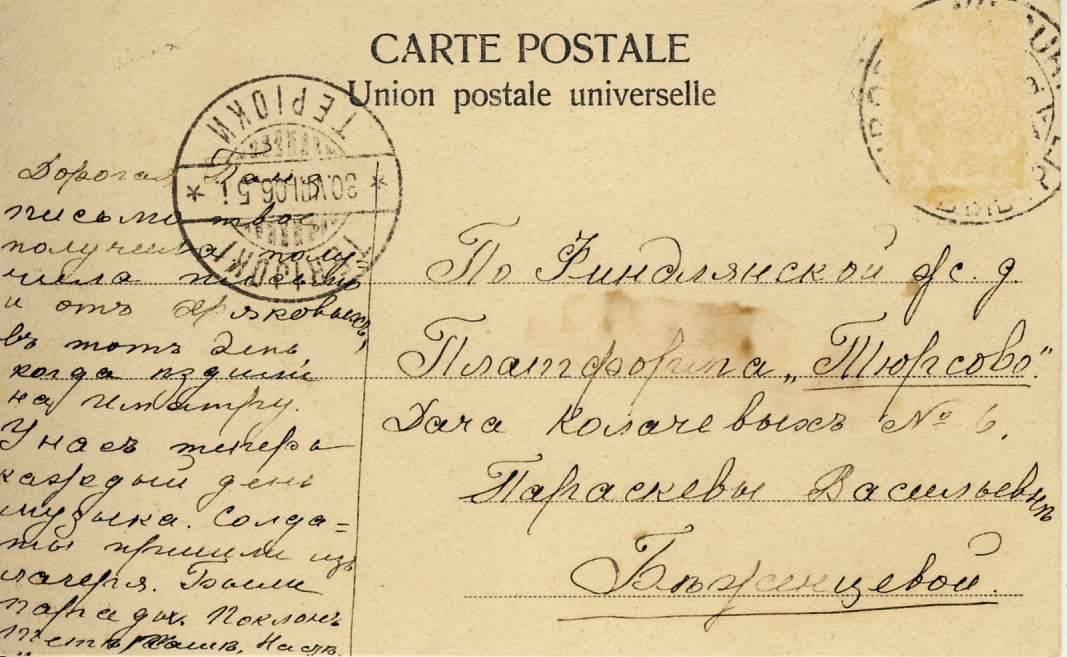 CARTE POSTALE
Union postale universelle
ТЕРІОКИ
30.VIII.06.5 i
TERIJOKI
Дорогая Таня
письмо твое
получила, полу-
чила письмо
и отъ Хряковыхъ,
въ тотъ день,
когда ѣздили
на Иматру.
У насъ теперь
каждый день
музыка. Солда=
ты пришли изъ
лагеря. Были
парады. Поклонъ
тетѣ
По Финдлянской ж. д.
Платформа „Тюрсово".
Дача Колачевыхъ № 6.
Параскевы Васильевнѣ
Бѣженцевой.